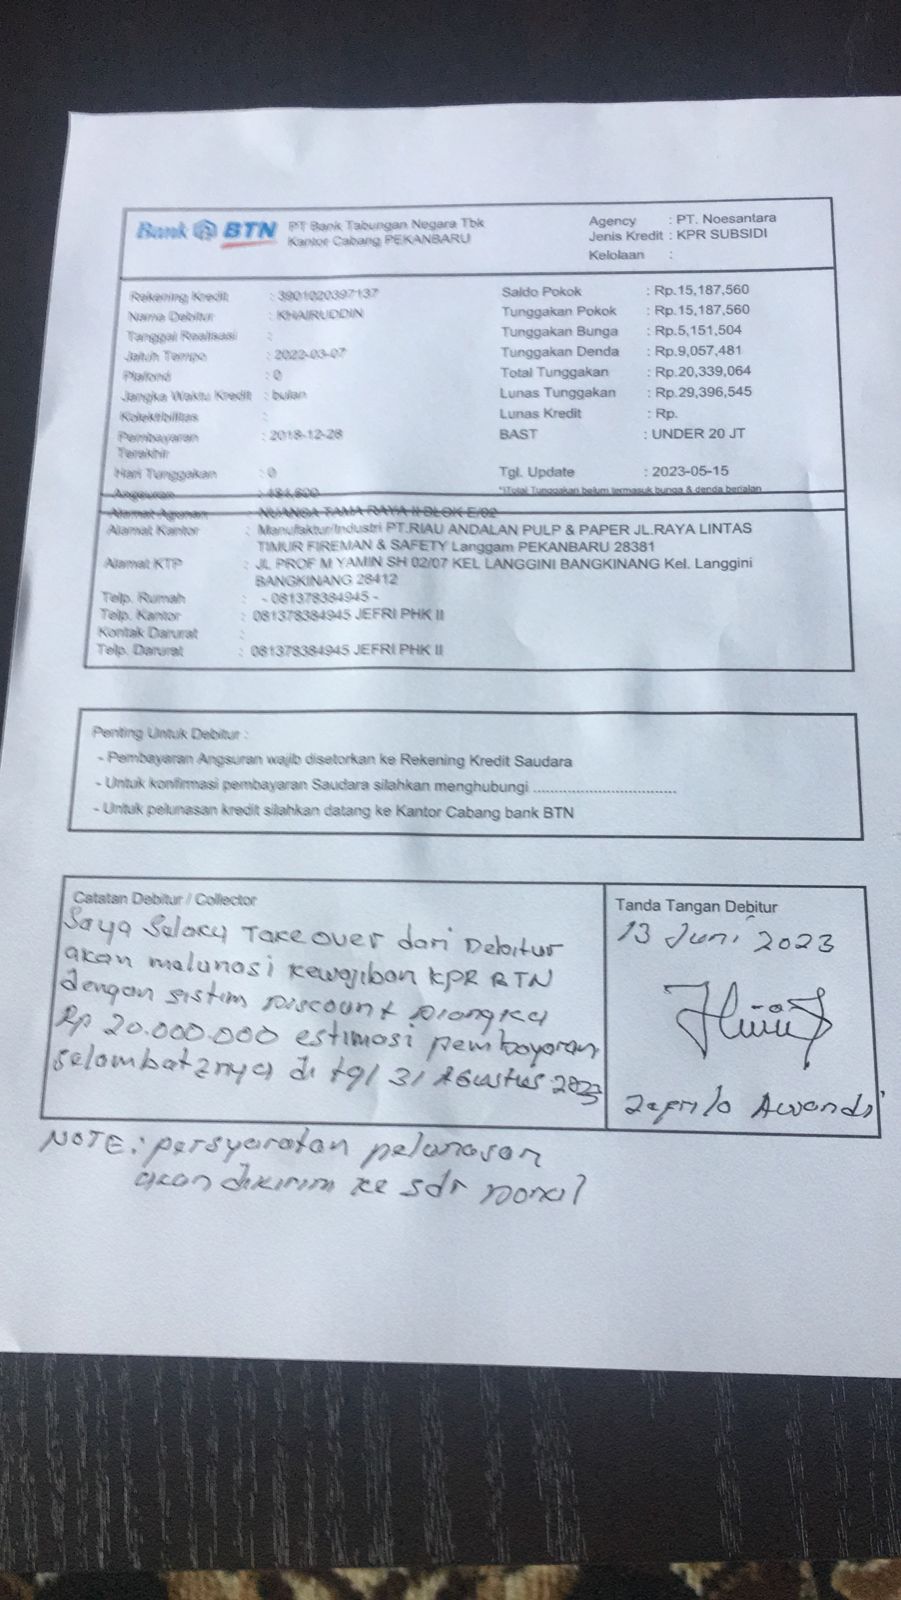 Bank BTN PT Bank Tabungan Negara Tbk
Kantor Cabang PEKANBARU
Agency : PT. Noesantara
Jenis Kredit : KPR SUBSIDI
Kelolaan :
Rekening Kredit : 3901020397137
Nama Debitur : KHAIRUDDIN
Tanggal Realisasi :
Jatuh Tempo : 2022-03-07
Plafond : 0
Jangka Waktu Kredit : bulan
Kolektibilitas :
Pembayaran Terakhir : 2018-12-28
Hari Tunggakan : 0
Angsuran : 484,600
Saldo Pokok : Rp.15,187,560
Tunggakan Pokok : Rp.15,187,560
Tunggakan Bunga : Rp.5,151,504
Tunggakan Denda : Rp.9,057,481
Total Tunggakan : Rp.20,339,064
Lunas Tunggakan : Rp.29,396,545
Lunas Kredit : Rp.
BAST : UNDER 20 JT
Tgl. Update : 2023-05-15
*)Total Tunggakan belum termasuk bunga & denda berjalan
Alamat Agunan : NUANSA TAMA RAYA II BLOK E/02
Alamat Kantor : Manufaktur/Industri PT.RIAU ANDALAN PULP & PAPER JL.RAYA LINTAS
TIMUR FIREMAN & SAFETY Langgam PEKANBARU 28381
Alamat KTP : JL PROF M YAMIN SH 02/07 KEL LANGGINI BANGKINANG Kel. Langgini
BANGKINANG 28412
Telp. Rumah : - 081378384945 -
Telp. Kantor : 081378384945 JEFRI PHK II
Kontak Darurat :
Telp. Darurat : 081378384945 JEFRI PHK II
Penting Untuk Debitur :
- Pembayaran Angsuran wajib disetorkan ke Rekening Kredit Saudara
- Untuk konfirmasi pembayaran Saudara silahkan menghubungi ................................
- Untuk pelunasan kredit silahkan datang ke Kantor Cabang bank BTN
Catatan Debitur / Collector
Saya Selaku Takeover dari Debitur
akan melunasi kewajiban KPR BTN
dengan sistim Discount Diangka
Rp 20.000.000 estimasi pembayaran
selambatznya di tgl 31 Agustus 2023
Tanda Tangan Debitur
13 Juni 2023
Awandi
NOTE: persyaratan pelunasan
akan dikirim ke sdr